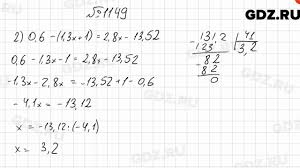 GDZ.RU
№1149
2) 0,6 - (1.3x + 1) = 2,8x - 13,52
0,6 - 1.3x - 1 = 2,8x - 13.52
-1.3x - 2,8x = -13,52 + 1 - 0,6
- 4,1x = -13,12
x = -13,12 : (-4,1)
x = 3,2
131,2 | 41
- 123 | 3,2
82
- 82
0
GDZ.RU